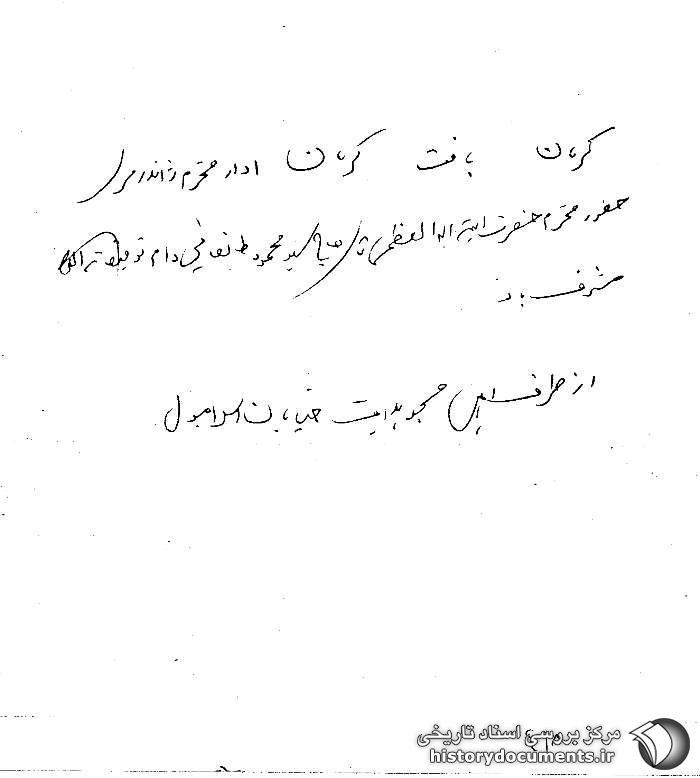 کرمان بافت کرمان اداره محترم ژاندرمری
حضور محترم حضرت ایة اله العظمی اقای سید محمود طالقانی دام توفیقاته
مشرف باد
از طرف اهالی مسجد هدایت خیابان اسلامبول
مرکز بررسی اسناد تاریخی
historydocuments.ir